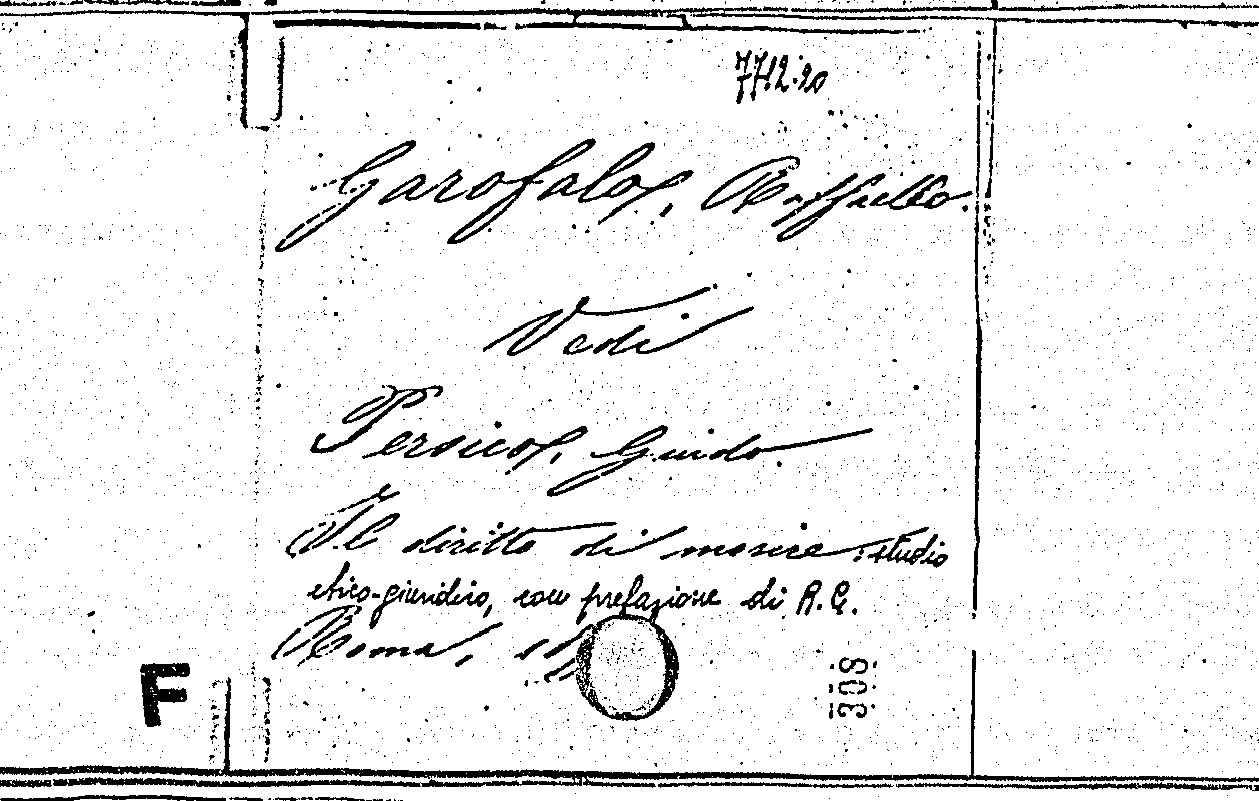 77.12.20
Garofalo, Raffaello.
Vedi
Persico, Guido.
Il diritto di morire: studio
etico-giuridico, con prefazione di R.G.
Roma,
F
308